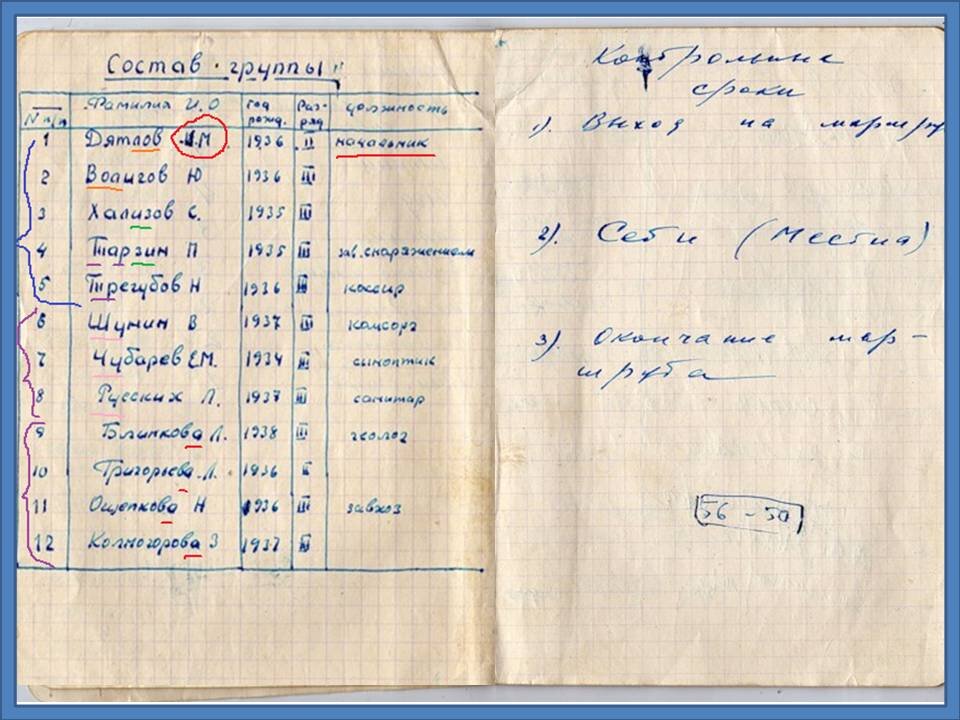 Состав группы
N п/п Фамилия И.О год рожд. Раз-ряд должность
1 Дятлов И.М 1936 II начальник
2 Волигов Ю 1936 III
3 Хализов С. 1935 III
4 Тарзин П 1935 III зав.снаряжением
5 Трегубов Н 1936 III кассир
6 Шунин В 1937 III комсорг
7 Чубарев Е.М. 1934 III синоптик
8 Русских Л. 1937 III санитар
9 Блинкова Л. 1938 III геолог
10 Григорьева Л. 1936 II
11 Ощепкова Н 1936 III завхоз
12 Колмогорова З 1937 III
Контрольные
сроки
1). Выход на маршру
2). Себи (Местиа)
3). Окончание мар-
шрута
56 - 50